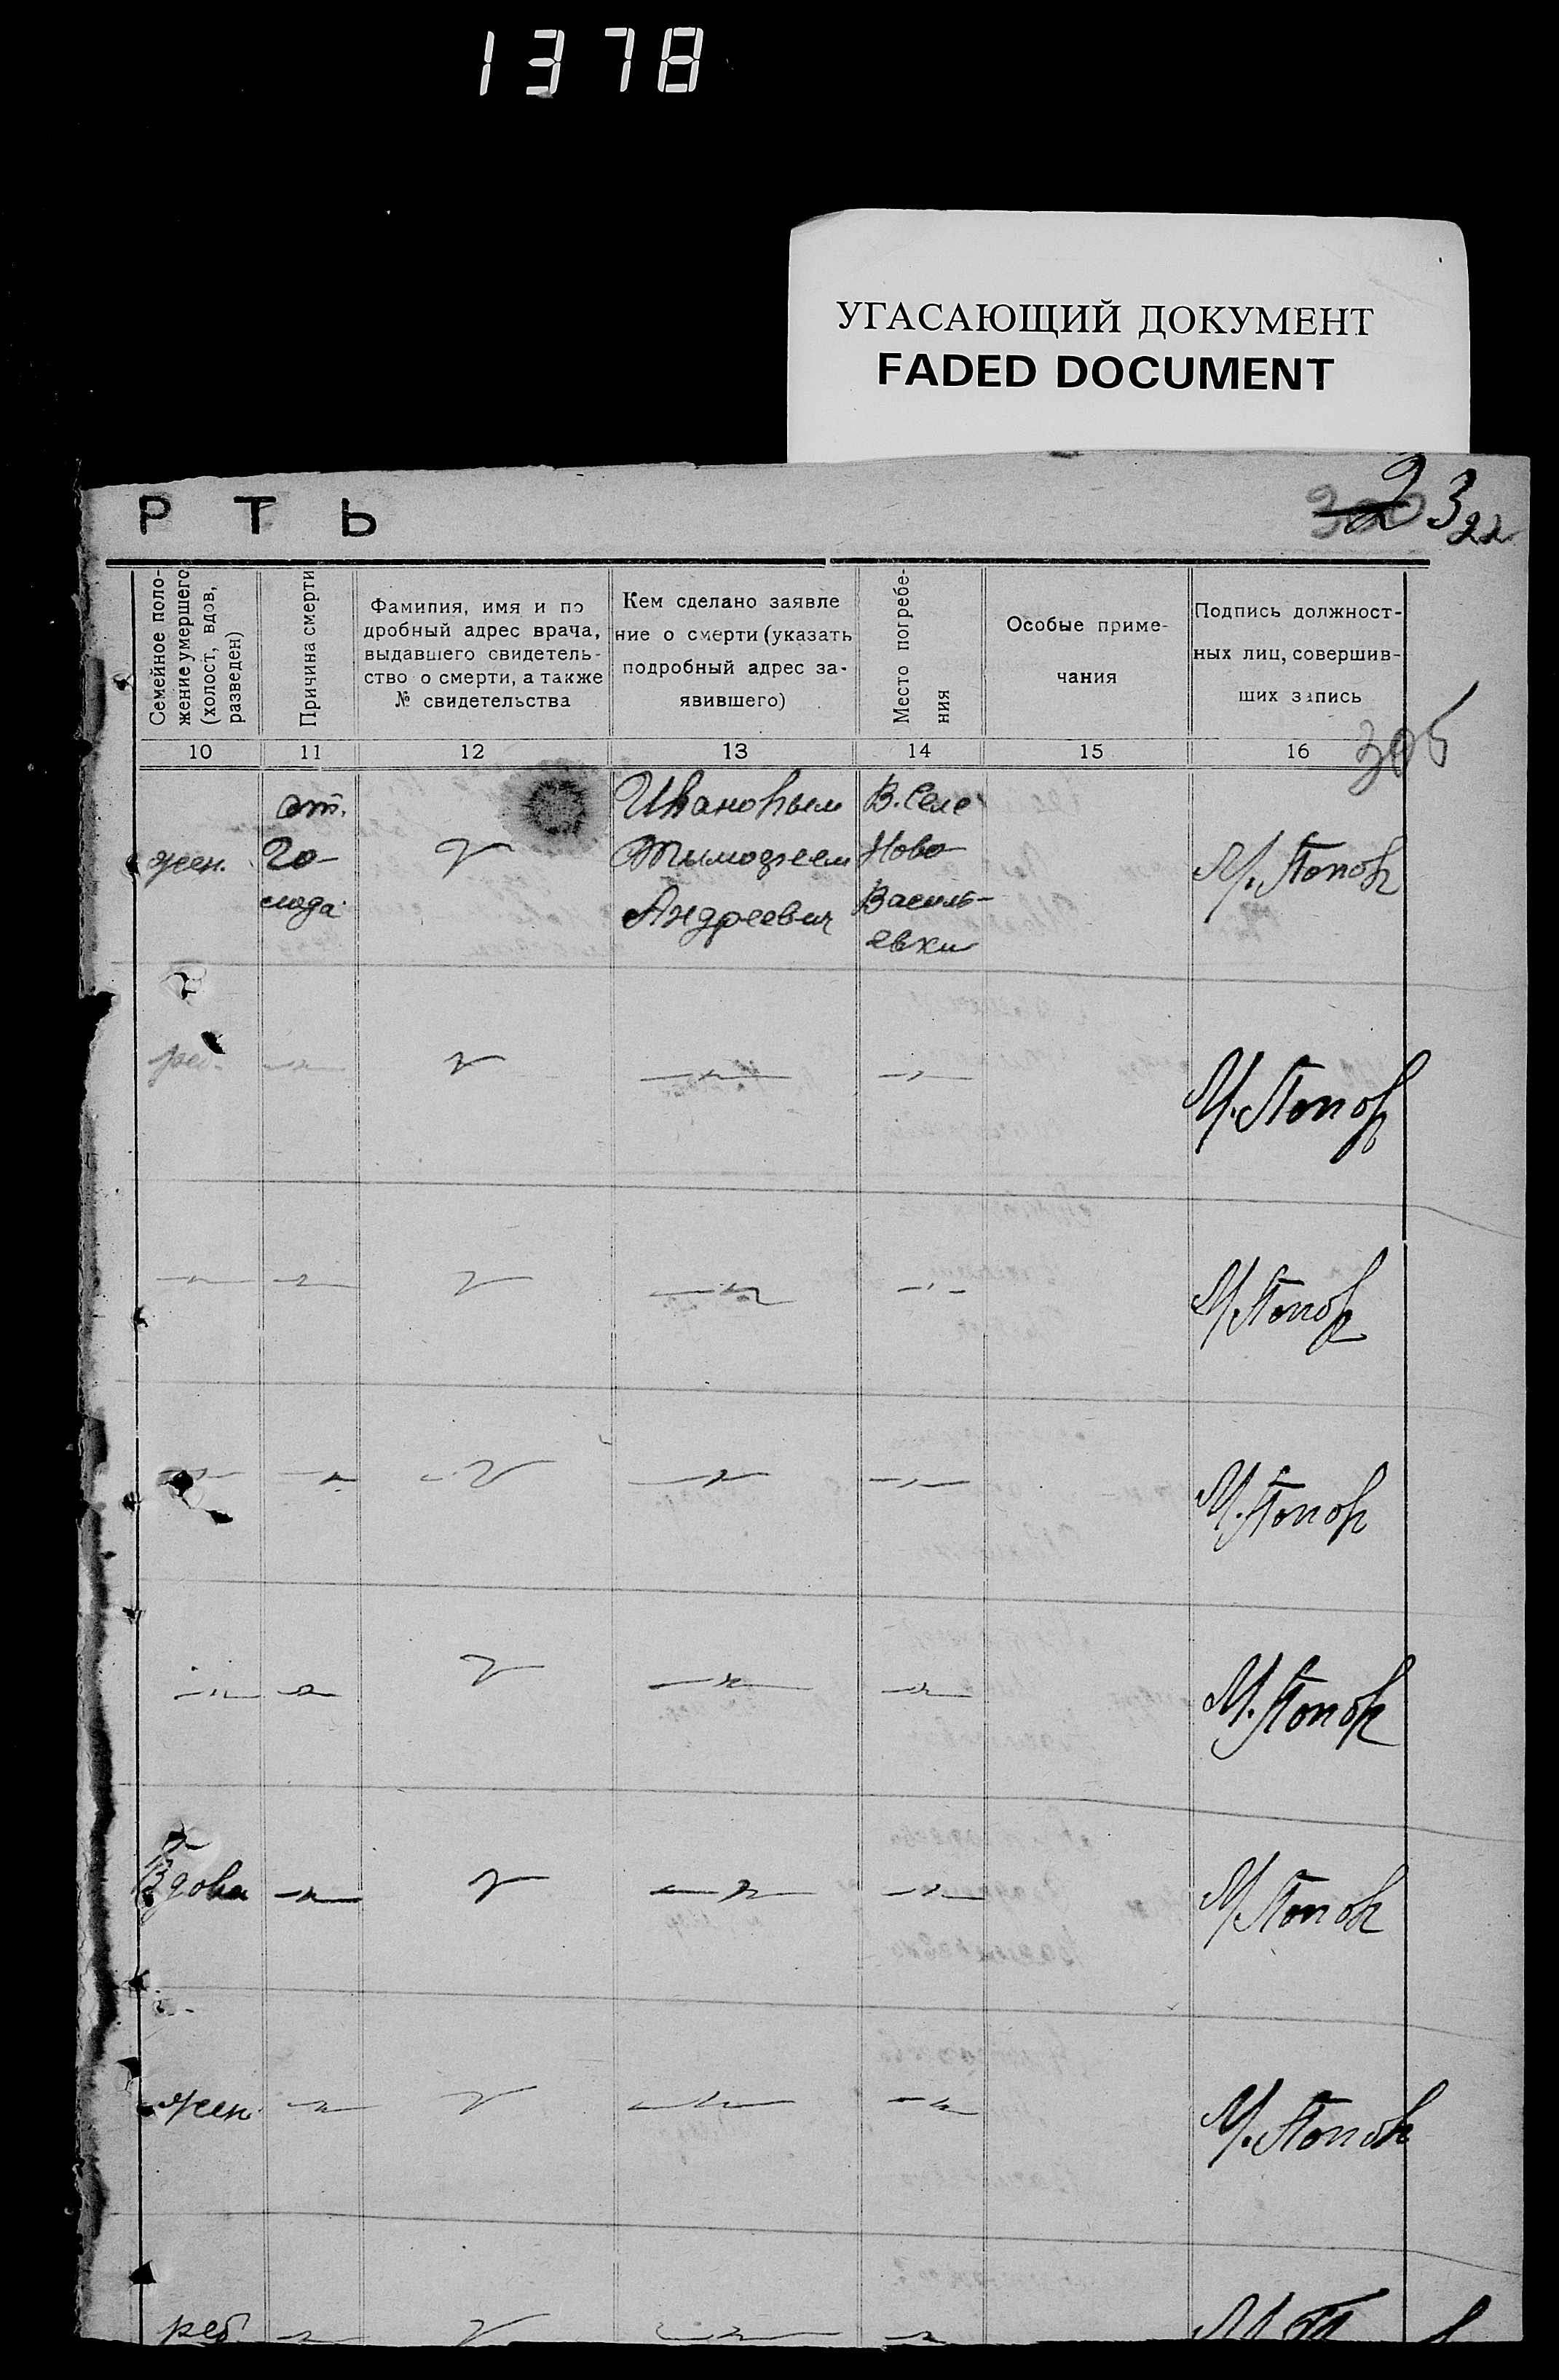 1378
УГАСАЮЩИЙ ДОКУМЕНТ
FADED DOCUMENT
РТЬ
23
22
Семейное поло-
жение умершего
(холост, вдов,
разведен)
Причина смерти
Фамилия, имя и по
дробный адрес врача,
выдавшего свидетель-
ство о смерти, а также
№ свидетельства
Кем сделано заявле
ние о смерти (указать
подробный адрес за-
явившего)
Место погребе-
ния
Особые приме-
чания
Подпись должност-
ных лиц, совершив-
ших запись
10 11 12 13 14 15 16
305
жен.
от.
Го-
лода
Ивановым
Тимофеем
Андреевич
В. Селе
Ново
Василь-
евки
М. Попов
реб. —„— —„— —„—
М. Попов
—„— —„— —„— —„—
М. Попов
—„— —„— —„— —„—
М. Попов
—„— —„— —„— —„—
М. Попов
Вдова —„— —„— —„—
М. Попов
жен —„— —„— —„—
М. Попов
реб. —„— —„— —„—